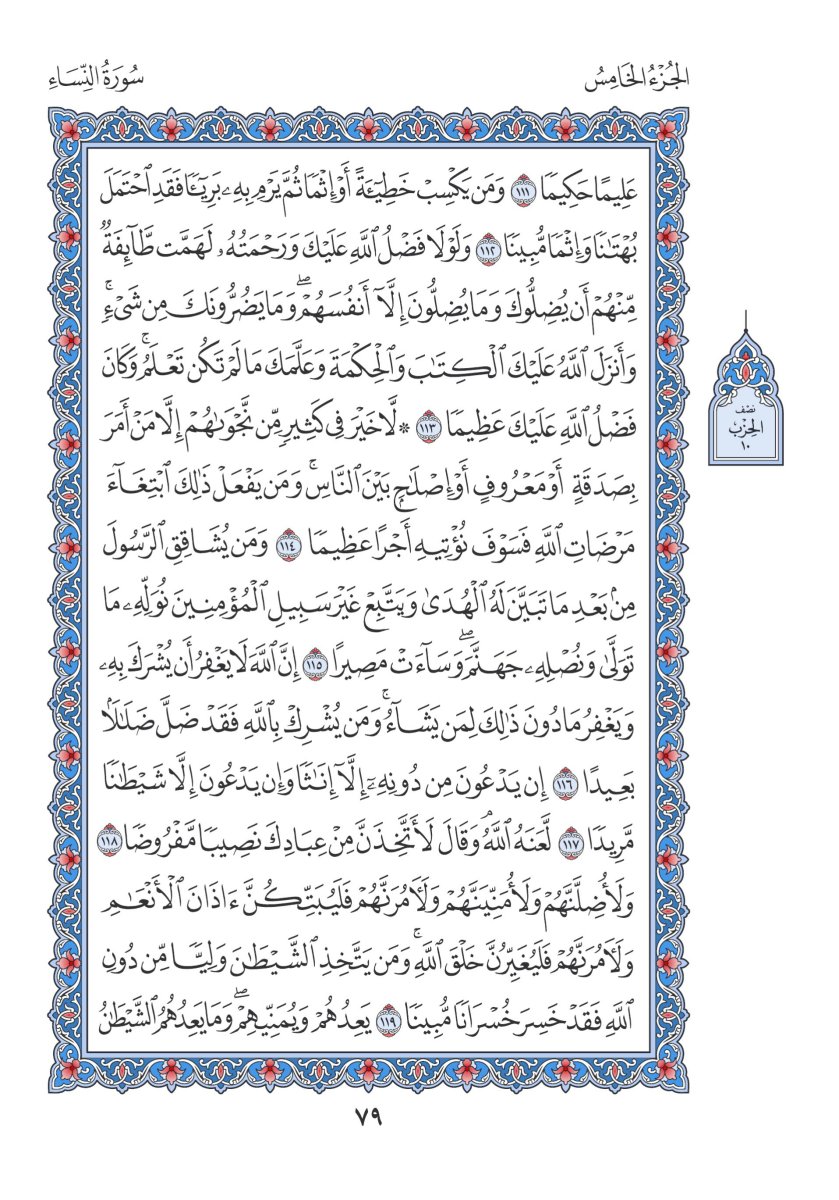 الجُزْءُ الخَامِسُ
سُورَةُ النِّسَاءِ
عَلِيمًا حَكِيمٗا ١١١ وَمَن يَكۡسِبۡ خَطِيٓـَٔةً أَوۡ إِثۡمٗا ثُمَّ يَرۡمِ بِهِۦ بَرِيٓـٔٗا فَقَدِ ٱحۡتَمَلَ
بُهۡتَٰنٗا وَإِثۡمٗا مُّبِينٗا ١١٢ وَلَوۡلَا فَضۡلُ ٱللَّهِ عَلَيۡكَ وَرَحۡمَتُهُۥ لَهَمَّت طَّآئِفَةٞ
مِّنۡهُمۡ أَن يُضِلُّوكَ وَمَا يُضِلُّونَ إِلَّآ أَنفُسَهُمۡۖ وَمَا يَضُرُّونَكَ مِن شَيۡءٖۚ
وَأَنزَلَ ٱللَّهُ عَلَيۡكَ ٱلۡكِتَٰبَ وَٱلۡحِكۡمَةَ وَعَلَّمَكَ مَا لَمۡ تَكُن تَعۡلَمُۚ وَكَانَ
فَضۡلُ ٱللَّهِ عَلَيۡكَ عَظِيمٗا ١١٣ * لَّا خَيۡرَ فِي كَثِيرٖ مِّن نَّجۡوَىٰهُمۡ إِلَّا مَنۡ أَمَرَ
بِصَدَقَةٍ أَوۡ مَعۡرُوفٍ أَوۡ إِصۡلَٰحِۭ بَيۡنَ ٱلنَّاسِۚ وَمَن يَفۡعَلۡ ذَٰلِكَ ٱبۡتِغَآءَ
مَرۡضَاتِ ٱللَّهِ فَسَوۡفَ نُؤۡتِيهِ أَجۡرًا عَظِيمٗا ١١٤ وَمَن يُشَاقِقِ ٱلرَّسُولَ
مِنۢ بَعۡدِ مَا تَبَيَّنَ لَهُ ٱلۡهُدَىٰ وَيَتَّبِعۡ غَيۡرَ سَبِيلِ ٱلۡمُؤۡمِنِينَ نُوَلِّهِۦ مَا
تَوَلَّىٰ وَنُصۡلِهِۦ جَهَنَّمَۖ وَسَآءَتۡ مَصِيرًا ١١٥ إِنَّ ٱللَّهَ لَا يَغۡفِرُ أَن يُشۡرَكَ بِهِۦ
وَيَغۡفِرُ مَا دُونَ ذَٰلِكَ لِمَن يَشَآءُۚ وَمَن يُشۡرِكۡ بِٱللَّهِ فَقَدۡ ضَلَّ ضَلَٰلَۢا
بَعِيدًا ١١٦ إِن يَدۡعُونَ مِن دُونِهِۦٓ إِلَّآ إِنَٰثٗا وَإِن يَدۡعُونَ إِلَّا شَيۡطَٰنٗا
مَّرِيدٗا ١١٧ لَّعَنَهُ ٱللَّهُۘ وَقَالَ لَأَتَّخِذَنَّ مِنۡ عِبَادِكَ نَصِيبٗا مَّفۡرُوضٗا ١١٨
وَلَأُضِلَّنَّهُمۡ وَلَأُمَنِّيَنَّهُمۡ وَلَأٓمُرَنَّهُمۡ فَلَيُبَتِّكُنَّ ءَاذَانَ ٱلۡأَنۡعَٰمِ
وَلَأٓمُرَنَّهُمۡ فَلَيُغَيِّرُنَّ خَلۡقَ ٱللَّهِۚ وَمَن يَتَّخِذِ ٱلشَّيۡطَٰنَ وَلِيّٗا مِّن دُونِ
ٱللَّهِ فَقَدۡ خَسِرَ خُسۡرَانٗا مُّبِينٗا ١١٩ يَعِدُهُمۡ وَيُمَنِّيهِمۡۖ وَمَا يَعِدُهُمُ ٱلشَّيۡطَٰنُ
نصف
الحِزْب
١٠
٧٩